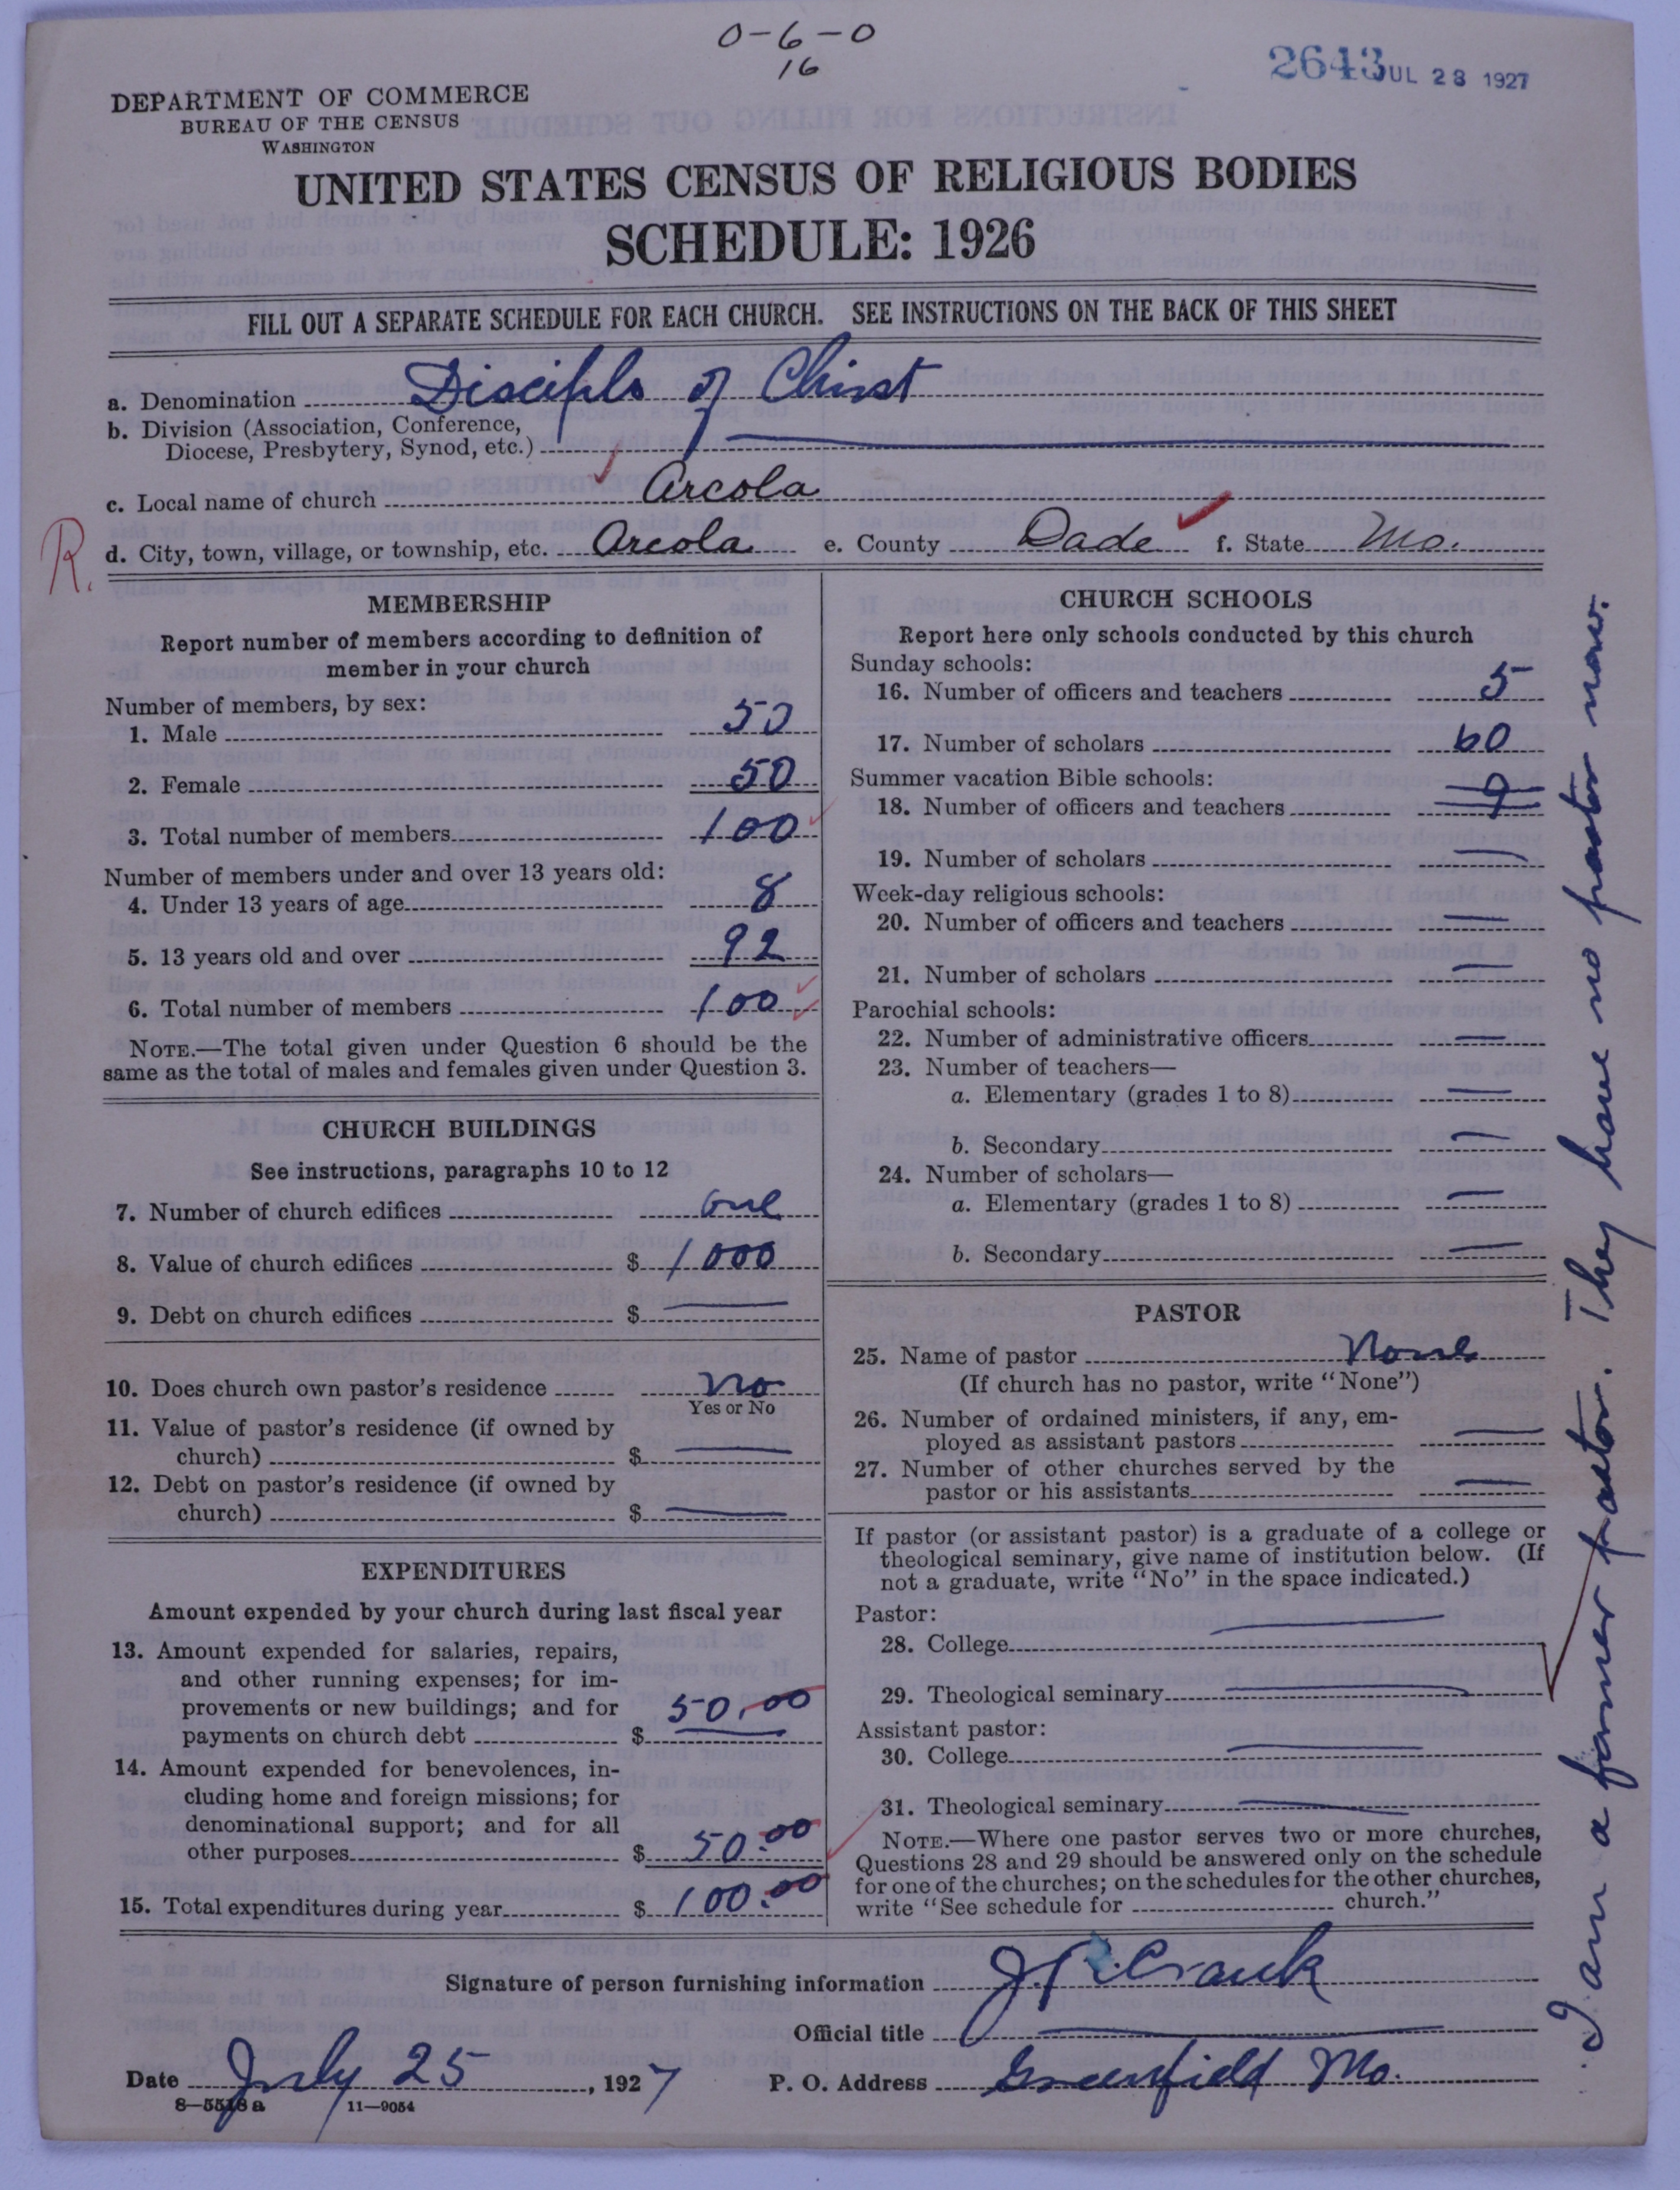 0-6-0
16
2643 JUL 28 1927
DEPARTMENT OF COMMERCE
BUREAU OF THE CENSUS
WASHINGTON
UNITED STATES CENSUS OF RELIGIOUS BODIES
SCHEDULE: 1926
FILL OUT A SEPARATE SCHEDULE FOR EACH CHURCH. SEE INSTRUCTIONS ON THE BACK OF THIS SHEET
a. Denomination Disciples of Christ
b. Division (Association, Conference,
Diocese, Presbytery, Synod, etc.)
c. Local name of church Arcola
R.
d. City, town, village, or township, etc. Arcola e. County Dade f. State Mo.
MEMBERSHIP
Report number of members according to definition of
member in your church
Number of members, by sex:
1. Male 50
2. Female 50
3. Total number of members 100
Number of members under and over 13 years old:
4. Under 13 years of age 8
5. 13 years old and over 92
6. Total number of members 100
NOTE.—The total given under Question 6 should be the
same as the total of males and females given under Question 3.
CHURCH BUILDINGS
See instructions, paragraphs 10 to 12
7. Number of church edifices one
8. Value of church edifices $ 1000
9. Debt on church edifices $ —
10. Does church own pastor's residence no
Yes or No
11. Value of pastor's residence (if owned by
church) $ —
12. Debt on pastor's residence (if owned by
church) $ —
EXPENDITURES
Amount expended by your church during last fiscal year
13. Amount expended for salaries, repairs,
and other running expenses; for im-
provements or new buildings; and for
payments on church debt $ 50.00
14. Amount expended for benevolences, in-
cluding home and foreign missions; for
denominational support; and for all
other purposes $ 50.00
15. Total expenditures during year $ 100.00
CHURCH SCHOOLS
Report here only schools conducted by this church
Sunday schools:
16. Number of officers and teachers 5
17. Number of scholars 60
Summer vacation Bible schools:
18. Number of officers and teachers
19. Number of scholars —
Week-day religious schools:
20. Number of officers and teachers —
21. Number of scholars —
Parochial schools:
22. Number of administrative officers —
23. Number of teachers—
a. Elementary (grades 1 to 8) —
b. Secondary —
24. Number of scholars—
a. Elementary (grades 1 to 8) —
b. Secondary —
PASTOR
25. Name of pastor None
(If church has no pastor, write "None")
26. Number of ordained ministers, if any, em-
ployed as assistant pastors —
27. Number of other churches served by the
pastor or his assistants —
If pastor (or assistant pastor) is a graduate of a college or
theological seminary, give name of institution below. (If
not a graduate, write "No" in the space indicated.)
Pastor:
28. College —
29. Theological seminary —
Assistant pastor:
30. College —
31. Theological seminary —
NOTE.—Where one pastor serves two or more churches,
Questions 28 and 29 should be answered only on the schedule
for one of the churches; on the schedules for the other churches,
write "See schedule for church."
I am a former pastor. They have no pastor now.
Signature of person furnishing information J R Crank
Official title —
Date July 25, 1927 P. O. Address Greenfield Mo.
8—5518 a 11—9054